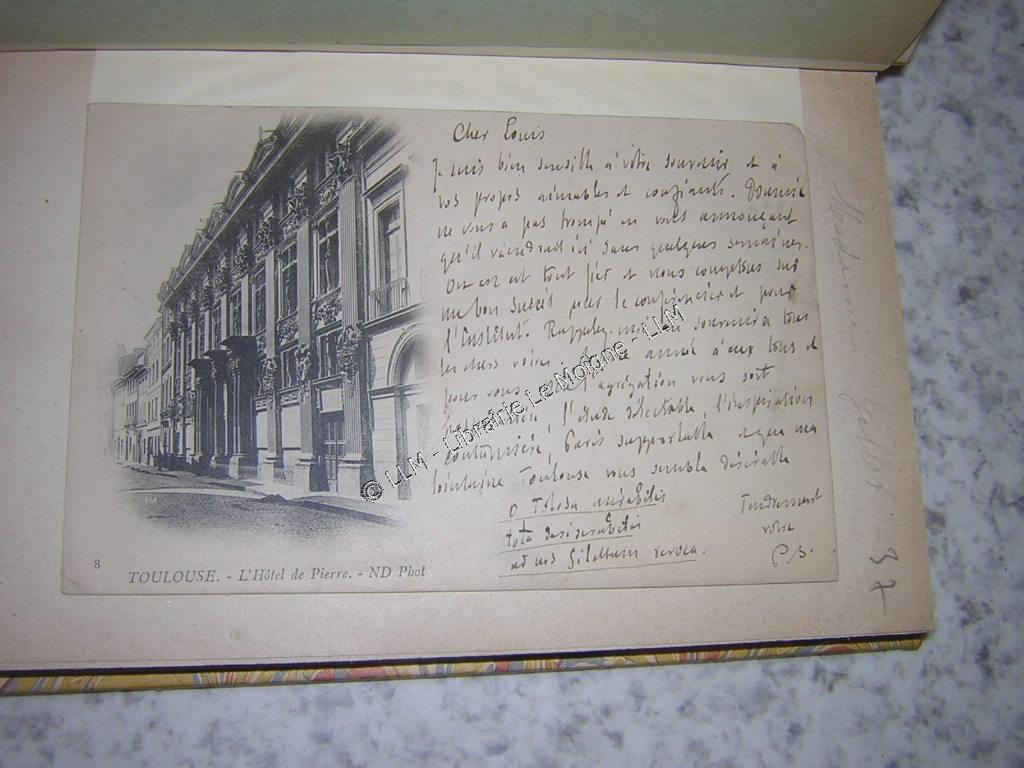 Cher Louis
Je suis bien sensible à votre souvenir et à
vos propos aimables et confiants.
ne vous a pas trompé en vous annonçant
qu'il viendrait ici dans quelques semaines.
On en est tout fier et nous comptons sur
un bon succès pour le conférencier et pour
l'Institut. Rappelez-moi au souvenir à tous
les chers voisins. année à eux tous et
pour vous. l'agrégation vous soit
l'étude délectable, l'inspiration
coutumière, Paris supportable et que ma
lointaine Toulouse vous semble désirable
O Tolosa mirabilis
tota desiderabilis
ad nos Gillettum revoca.
Tendrement
votre
8
TOULOUSE. - L'Hôtel de Pierre. - ND Phot
Madame Gillet
37
© LLM - Librairie Le Moigne - LLM